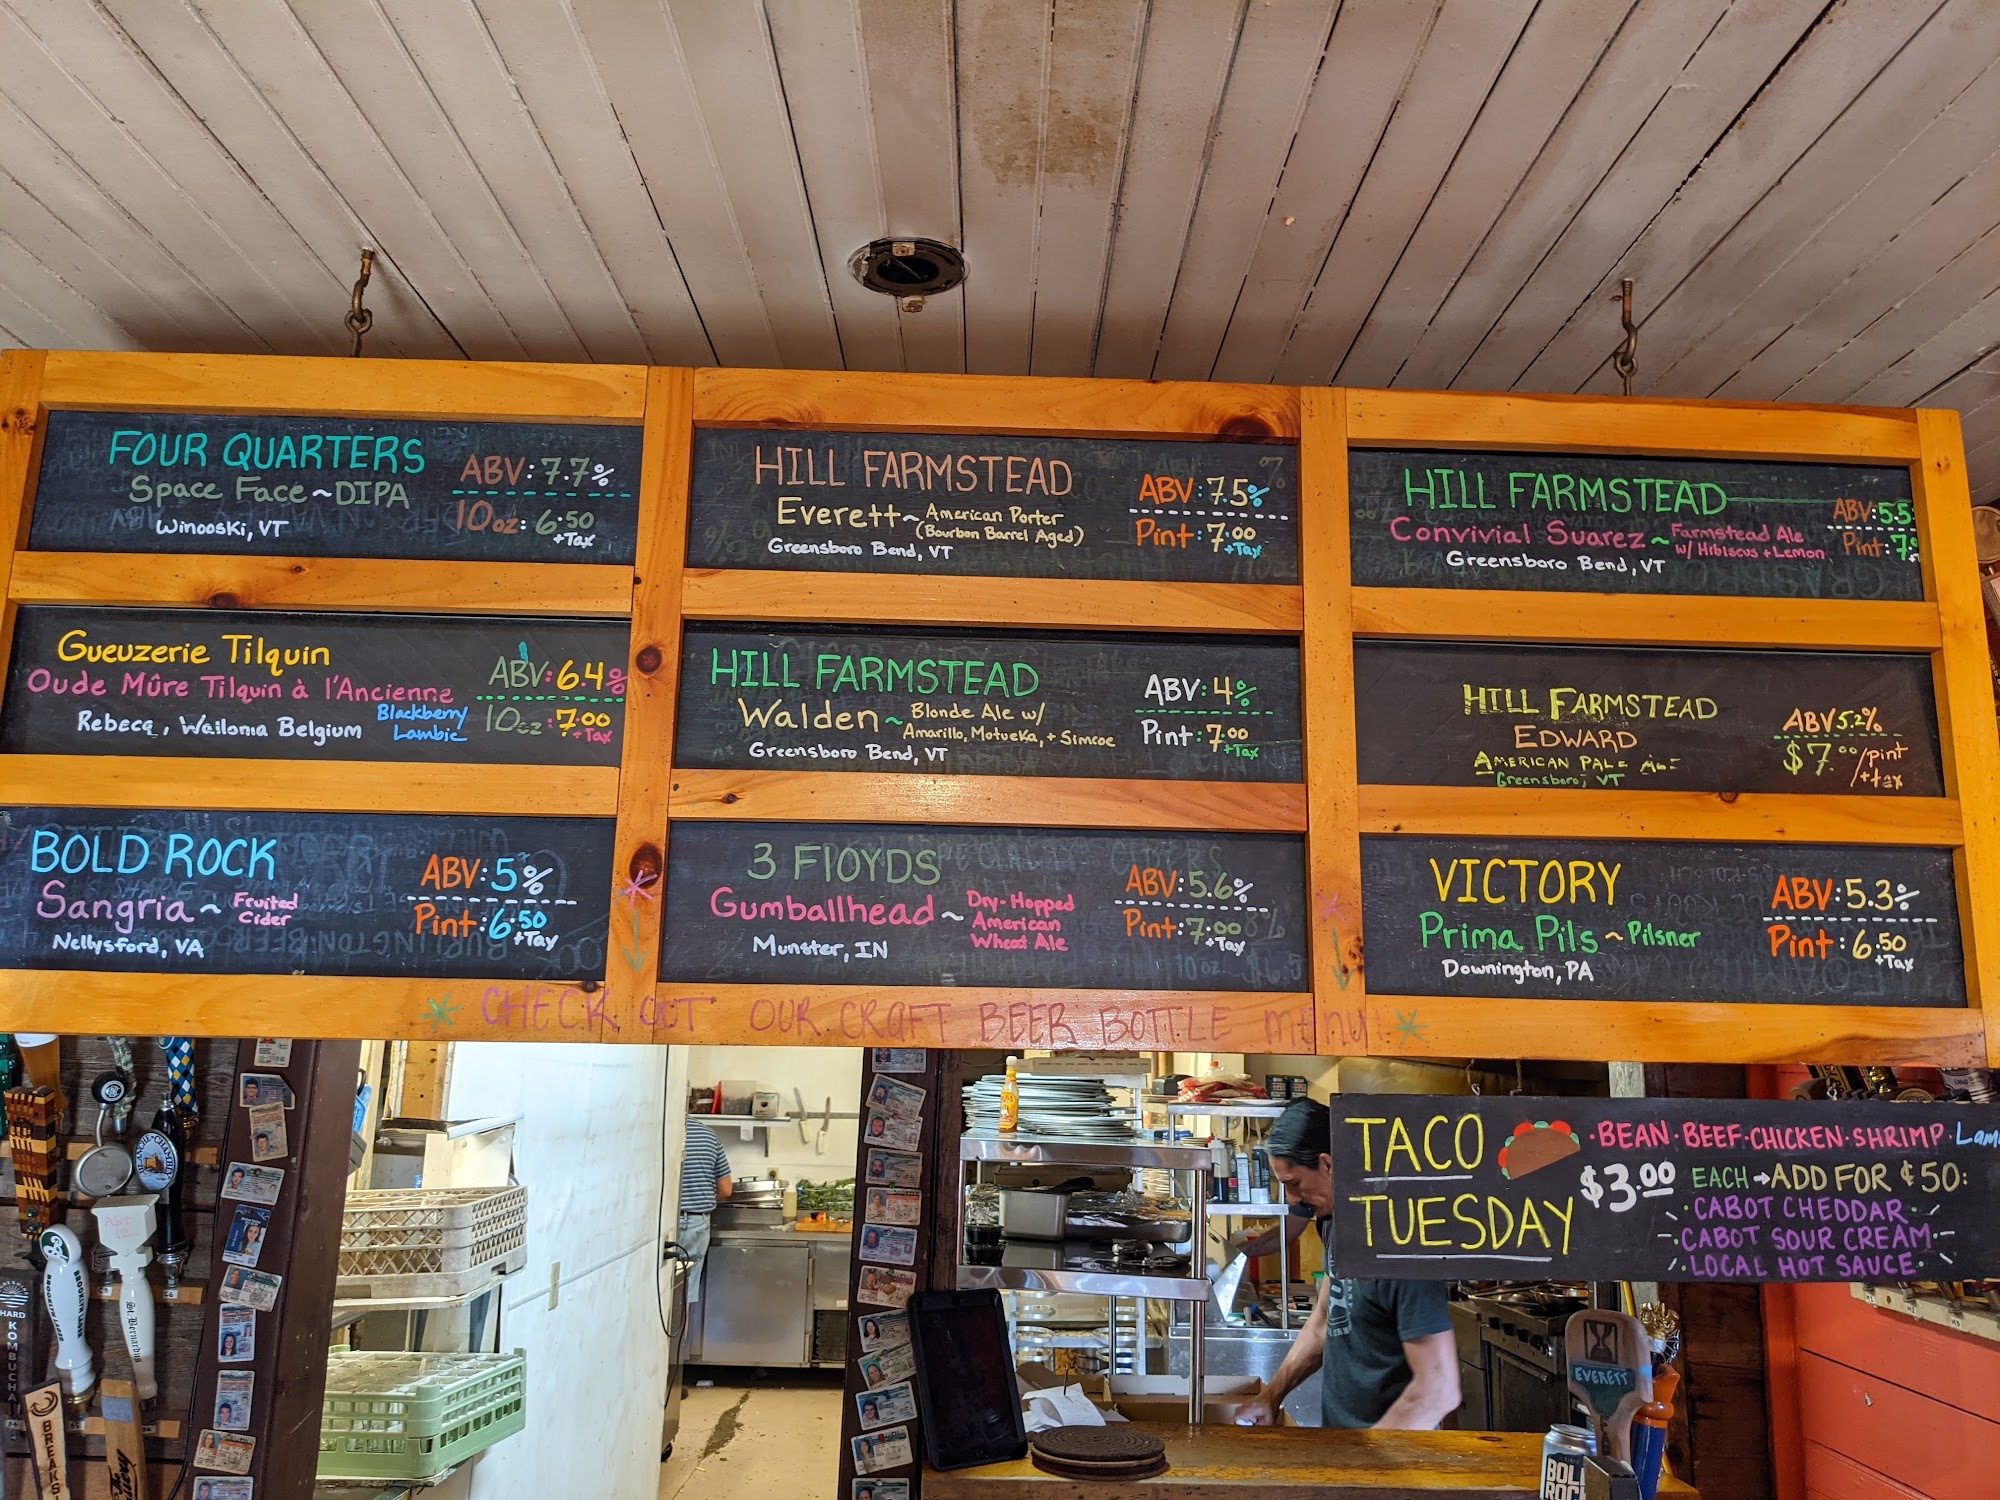 FOUR QUARTERS
Space Face ~ DIPA
Winooski, VT
ABV: 7.7%
10oz: 6.50
+Tax
HILL FARMSTEAD
Everett ~ American Porter
(Bourbon Barrel Aged)
Greensboro Bend, VT
ABV: 7.5%
Pint: 7.00
+Tax
HILL FARMSTEAD
Convivial Suarez ~ Farmstead Ale
w/ Hibiscus + Lemon
Greensboro Bend, VT
ABV: 5.5
Pint: 7.
Gueuzerie Tilquin
Oude Mûre Tilquin à l'Ancienne
Rebecq, Wallonia Belgium
Blackberry
Lambic
ABV: 6.4%
10oz: 7.00
+Tax
HILL FARMSTEAD
Walden ~ Blonde Ale w/
Amarillo, Motueka, + Simcoe
Greensboro Bend, VT
ABV: 4%
Pint: 7.00
+Tax
HILL FARMSTEAD
EDWARD
AMERICAN PALE ALE
Greensboro, VT
ABV 5.2%
$7.00/pint
+tax
BOLD ROCK
Sangria ~ Fruited
Cider
Nellysford, VA
ABV: 5%
Pint: 6.50
+Tax
3 FlOYDS
Gumballhead ~ Dry-Hopped
American
Wheat Ale
Munster, IN
ABV: 5.6%
Pint: 7.00
+Tax
VICTORY
Prima Pils ~ Pilsner
Downington, PA
ABV: 5.3%
Pint: 6.50
+Tax
CHECK OUT OUR CRAFT BEER BOTTLE menu!
TACO
TUESDAY
· BEAN · BEEF · CHICKEN · SHRIMP · Lam
$3.00 EACH → ADD FOR ¢50:
· CABOT CHEDDAR ·
· CABOT SOUR CREAM ·
· LOCAL HOT SAUCE ·
BROOKLYN LAGER
St. Bernardus
HARD
KOMBUCHA
BREAKS
EVERETT
BOLD
ROCK